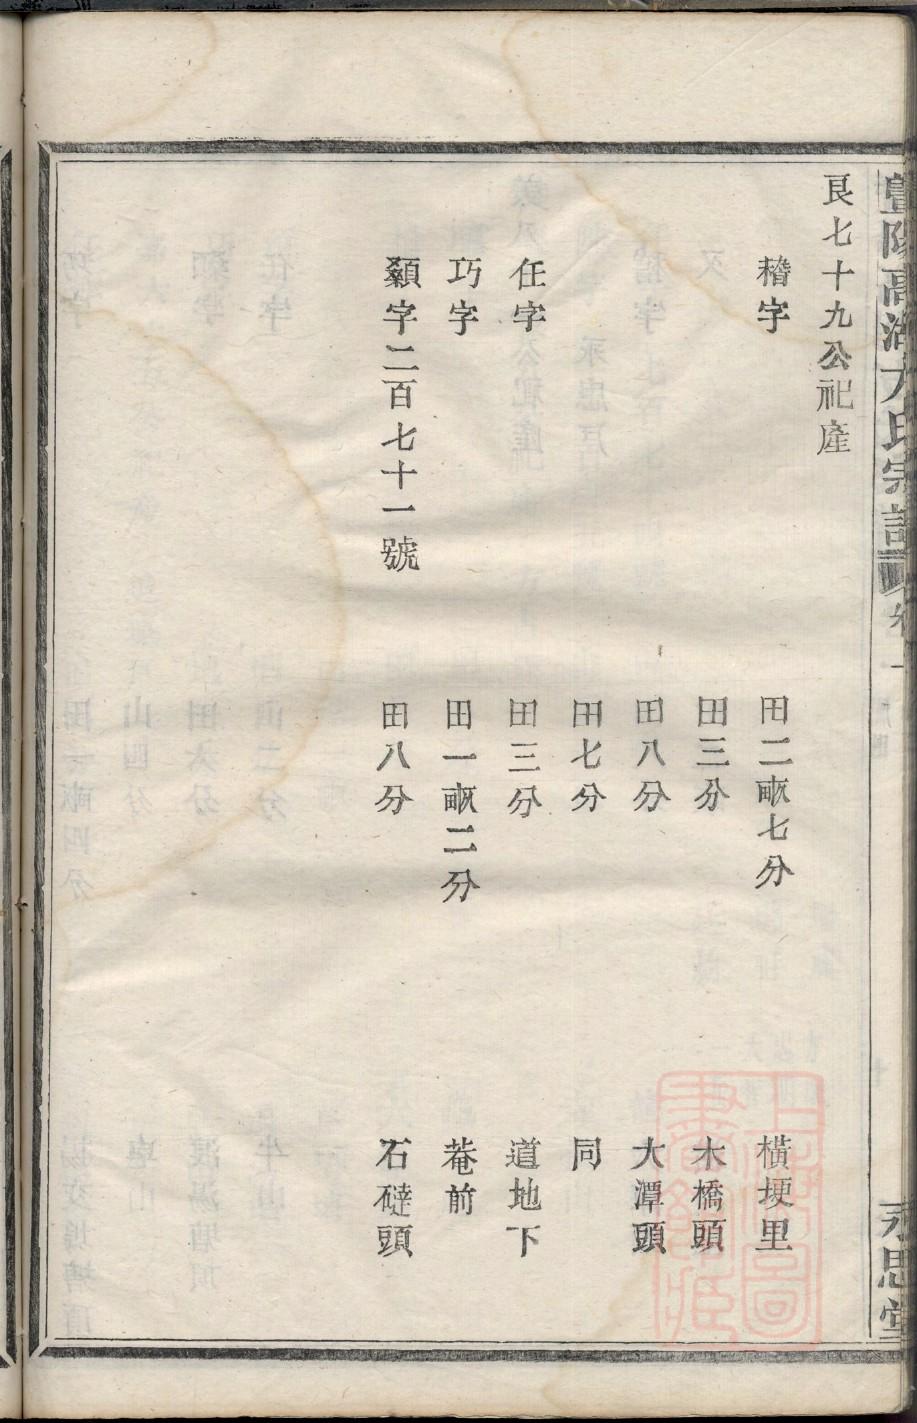 暨陽高湖方氏宗譜 卷十
永思堂
艮七十九公祀產
稽字 田二畝七分 橫埂里
田三分 木橋頭
田八分 大潭頭
田七分 同
任字 田三分 道地下
巧字 田一畝二分 菴前
顙字二百七十一號 田八分 石磓頭
上海圖書館藏